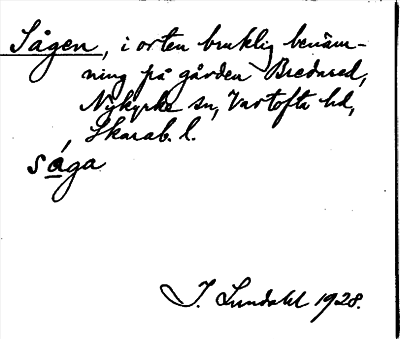 Sågen, i orten bruklig benäm-
ning på gården Bredared,
Nykyrke sn, Vartofta hd,
Skarab. l.
sá̱ga
I. Lundahl 1928.